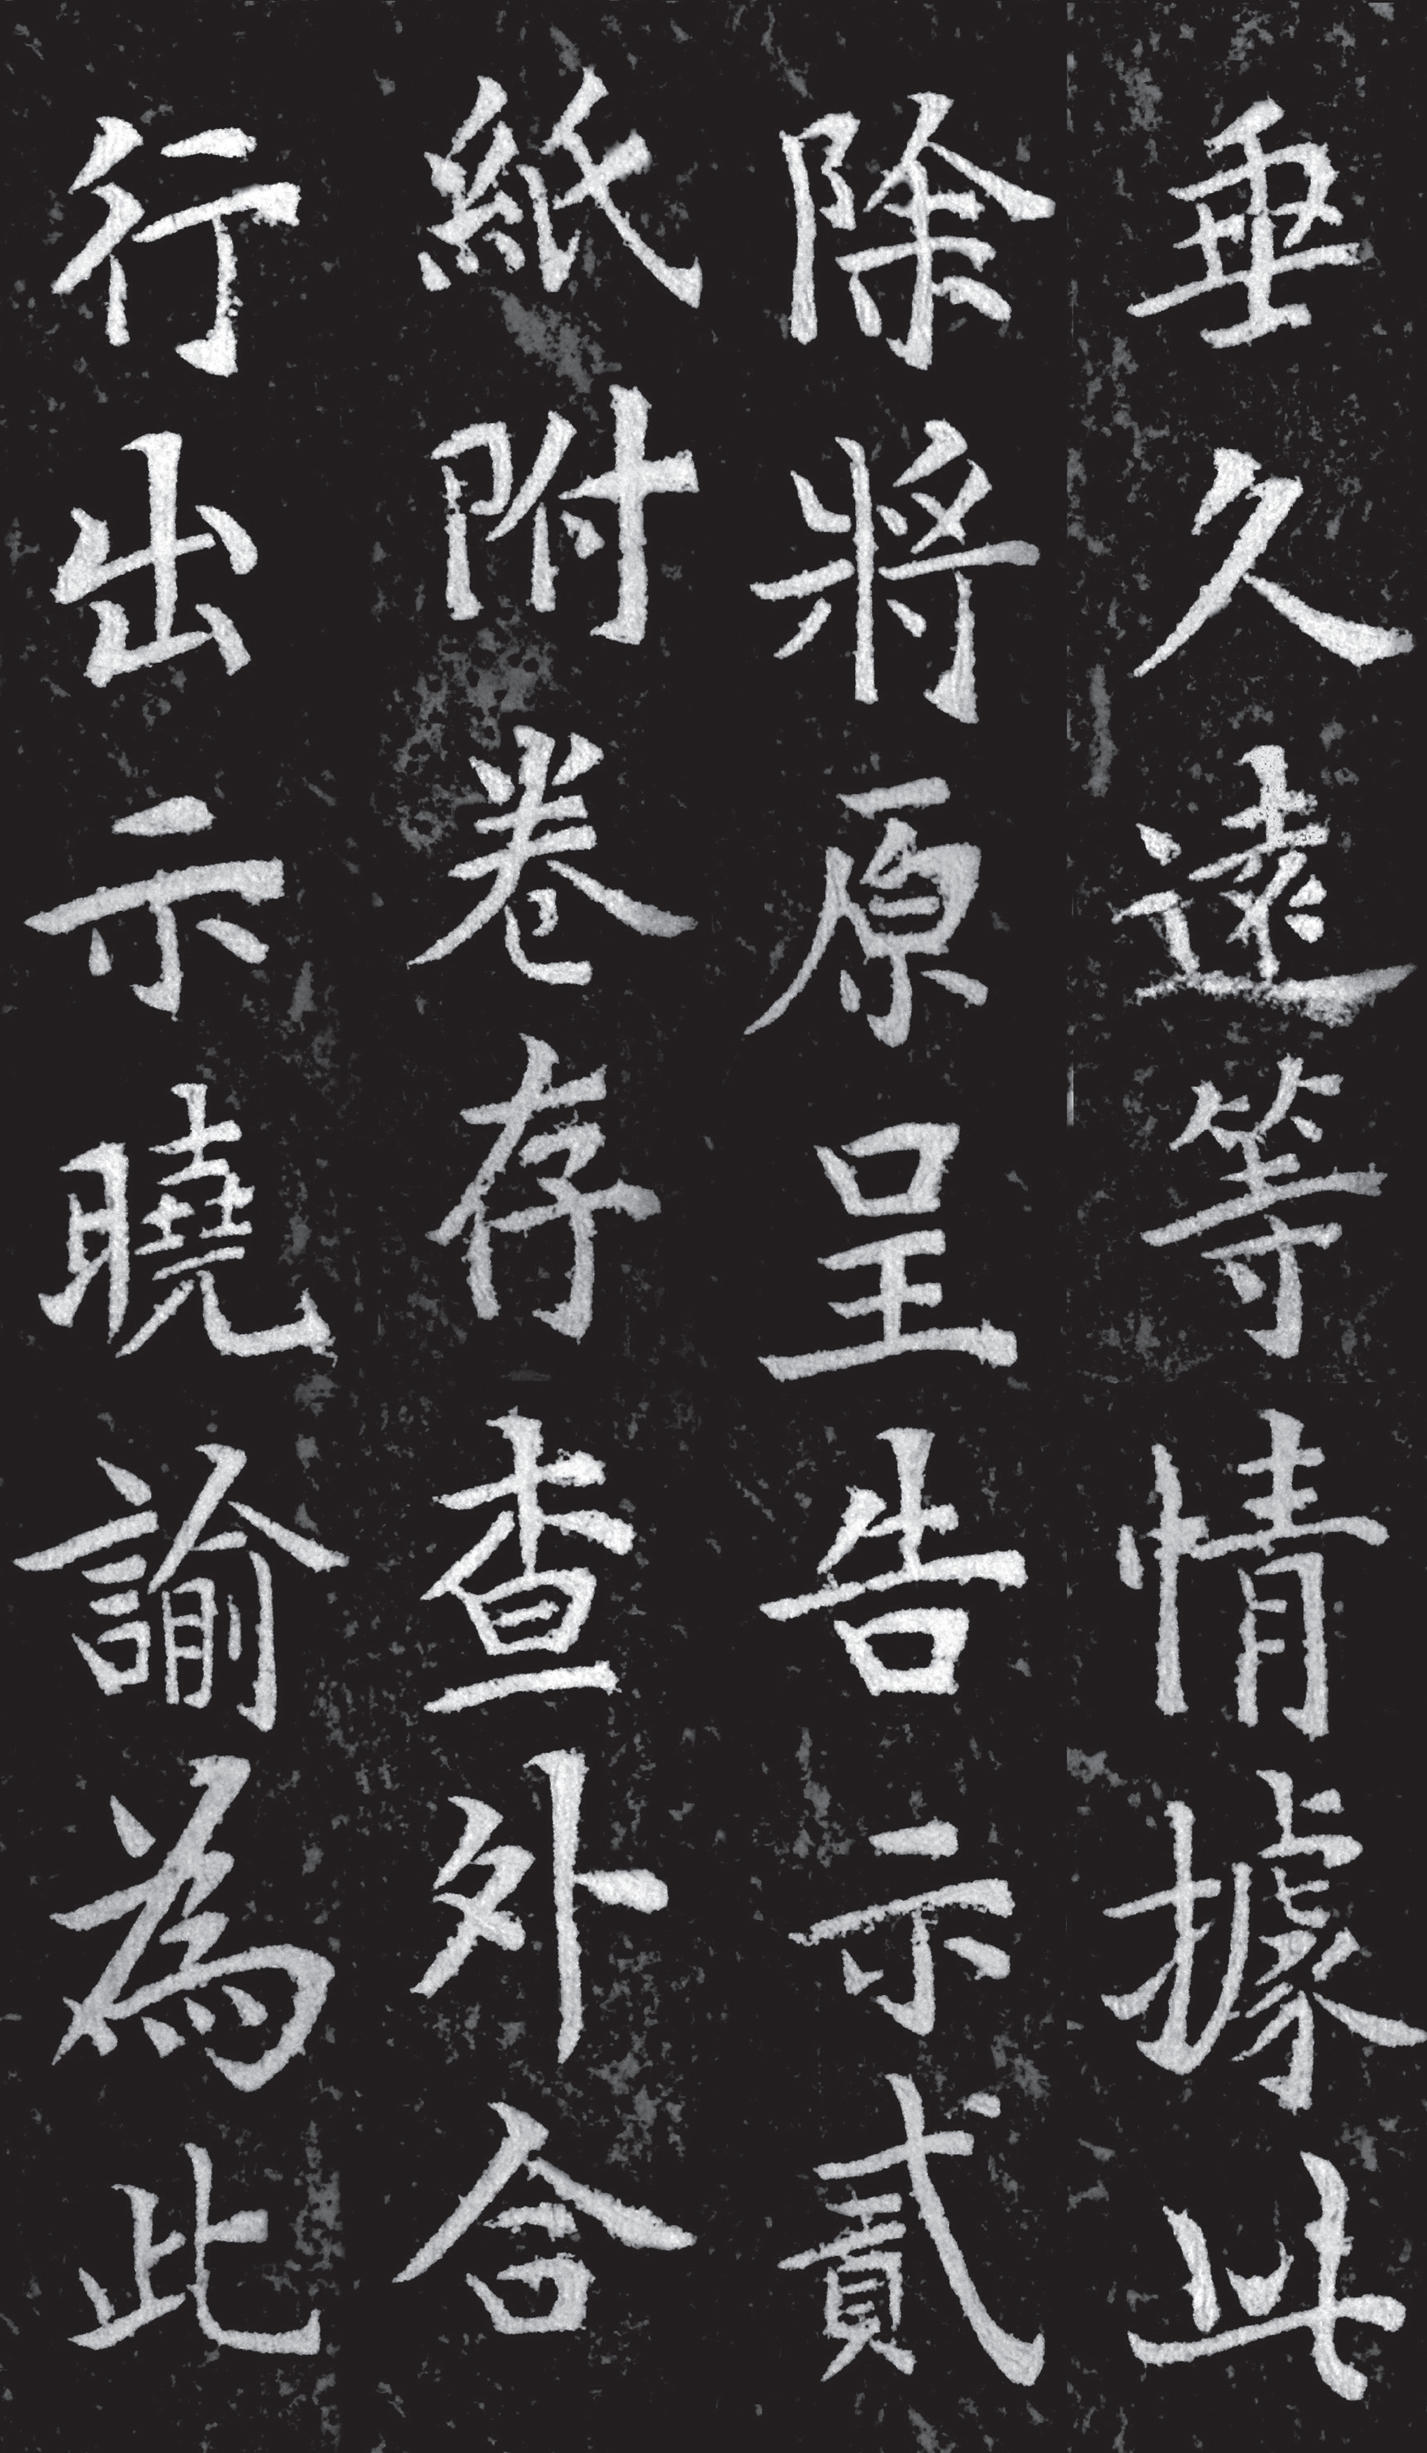 垂久遠等情據此
除將原呈告示貳
紙附卷存查外合
行出示曉諭為此